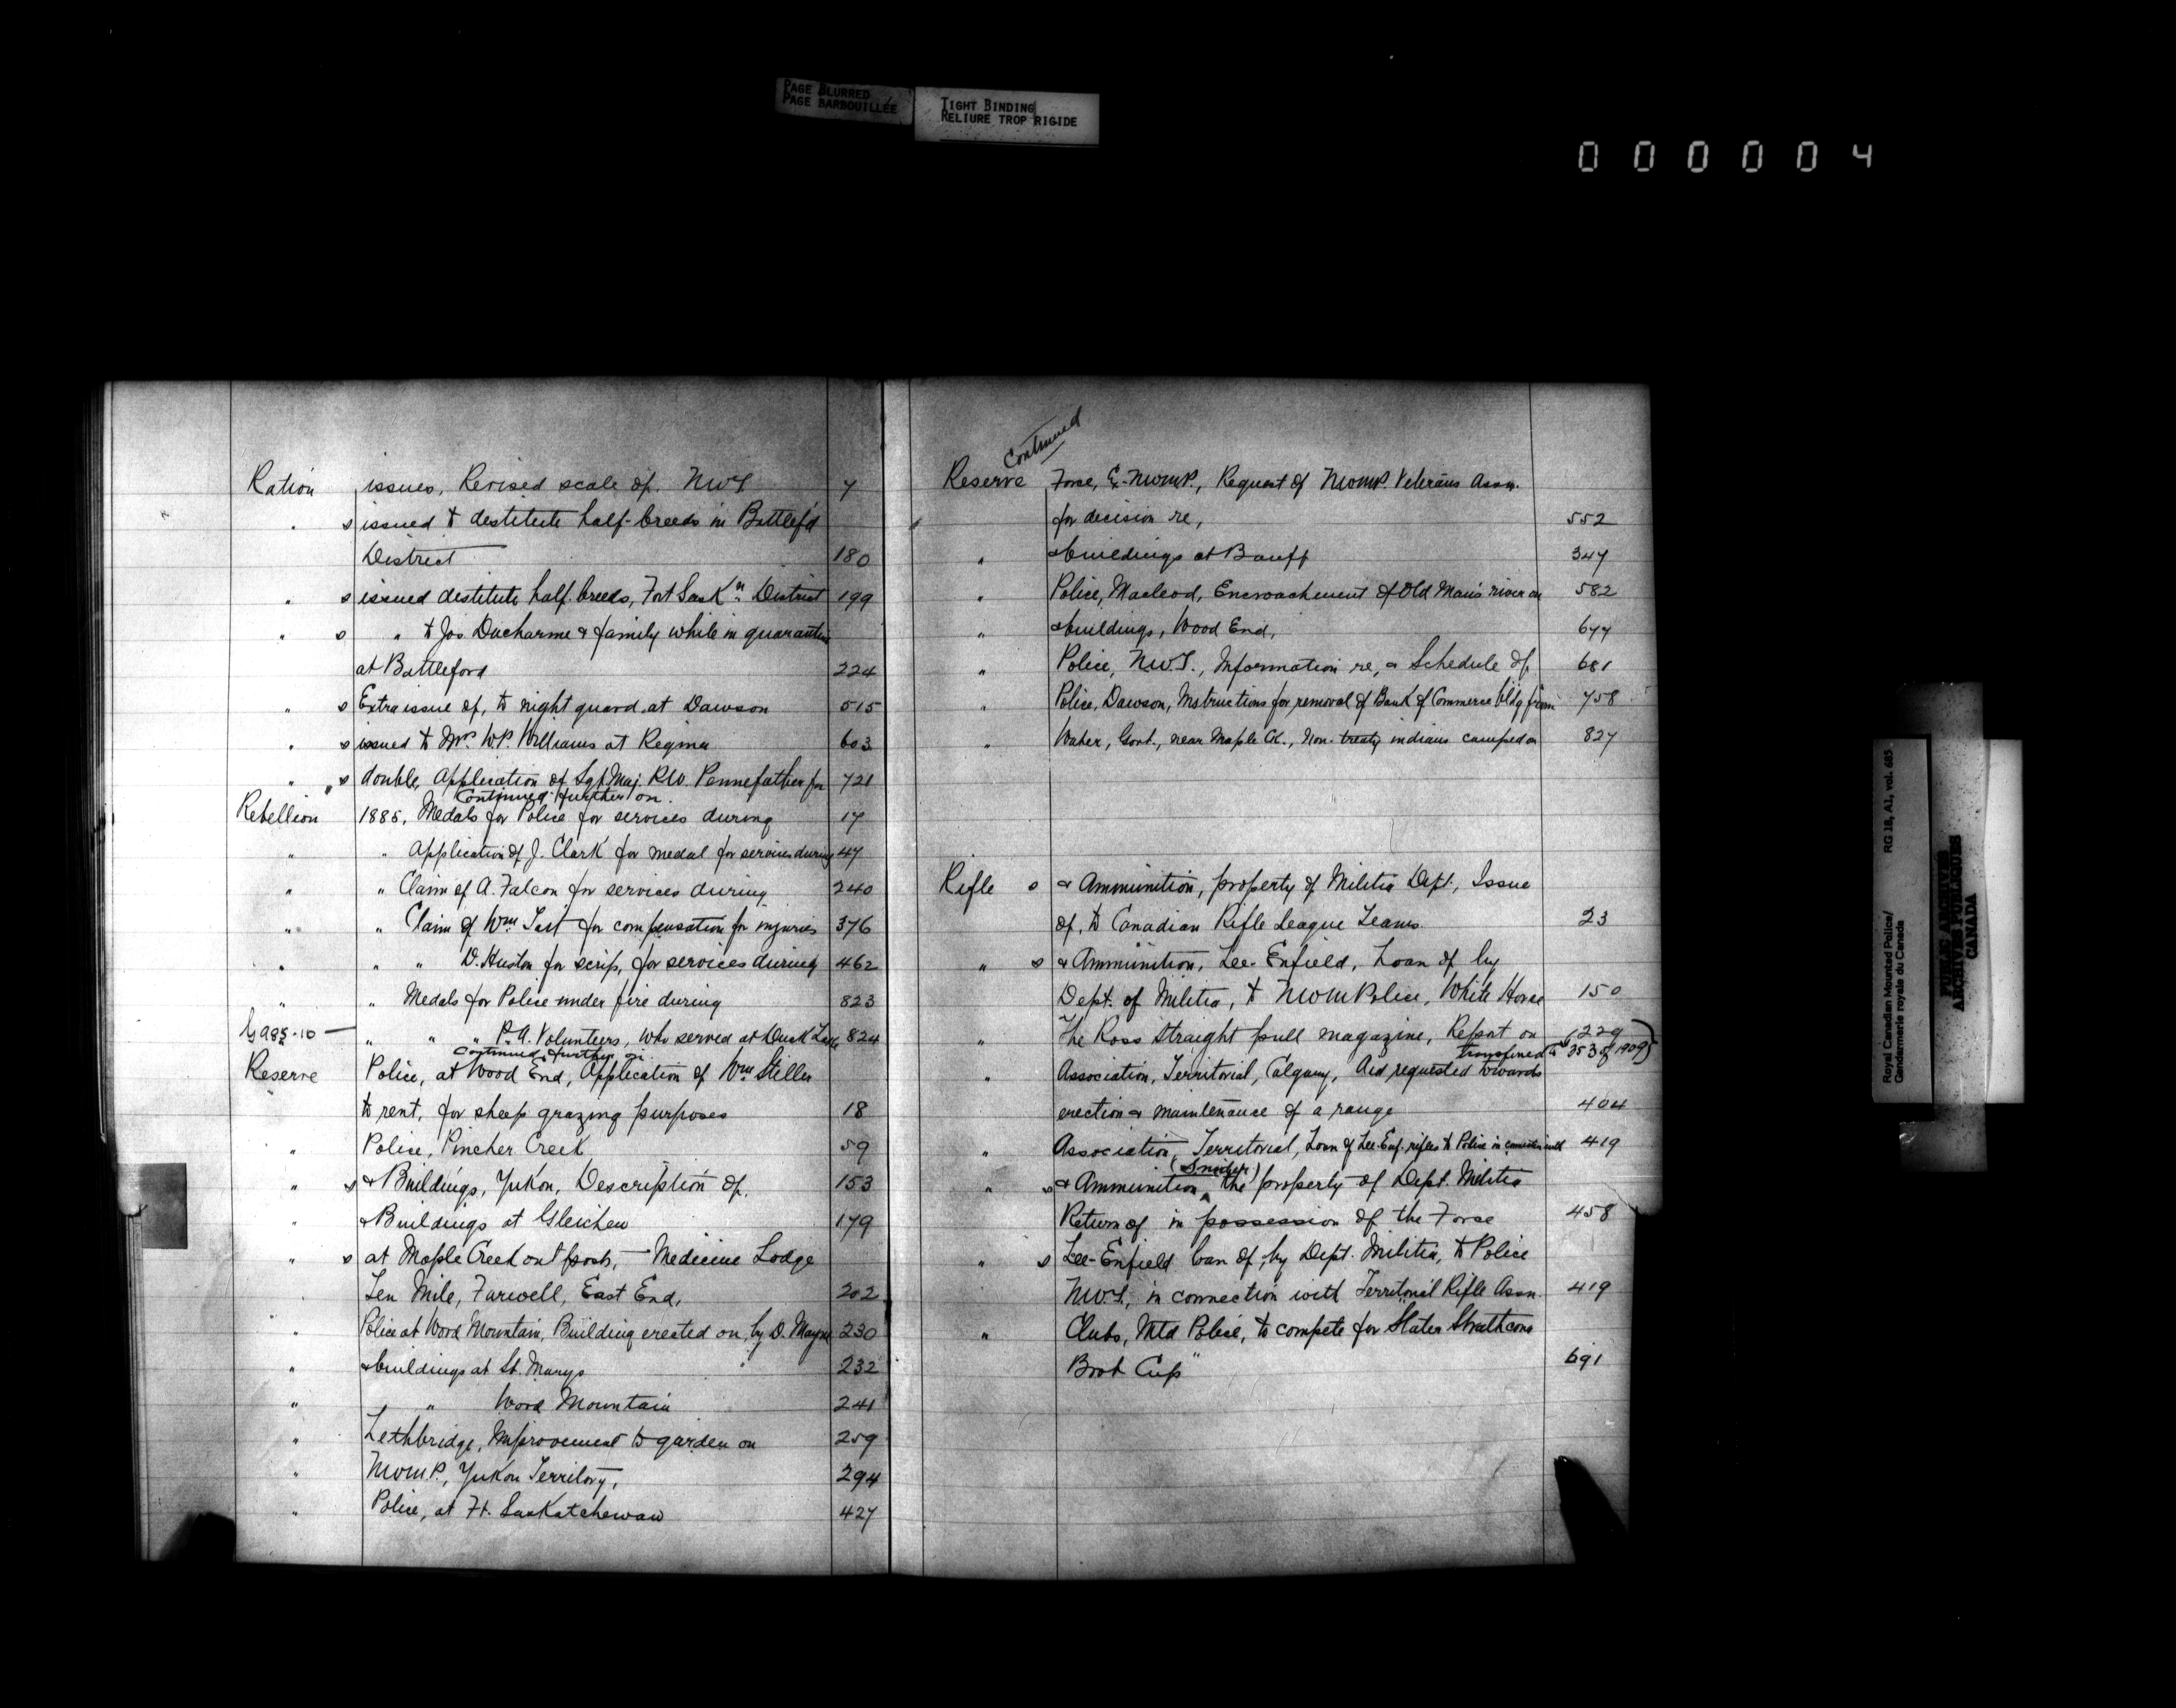 PAGE BLURRED
PAGE BARBOUILLÉE
TIGHT BINDING
RELIURE TROP RIGIDE
0 0 0 0 0 4
Ration issues, Revised scale of. NWT 7
" s issued to destitute half-breeds in Battlef'd
District 180
" s issued destitute half-breeds, Fort Sask'n District 199
" s " to Jos Ducharme & family while in quarantine
at Battleford 224
" s Extra issue of, to night guard at Dawson 515
" s issued to Mrs W.P. Williams at Regina 603
" s double, Application of Sgt. Maj. R.W. Pennefather for 721
Continued further on.
Rebellion 1885, Medals for Police for services during 17
" " Application of J. Clark for medal for services during 47
" " Claim of A. Falcon for services during 240
" " Claim of Wm. Tait for compensation for injuries 376
" " " D. Huston for scrip, for services during 462
" " Medals for Police under fire during 823
G 985-10 — " " " P.A. Volunteers, who served at Duck Lake 824
Continued further on
Reserve Police, at Wood End, Application of Wm Stiller
to rent, for sheep grazing purposes 18
" Police, Pincher Creek 59
" s & Buildings, Yukon, Description of. 153
" & Buildings at Gleichen 179
" s at Maple Creek outposts, — Medicine Lodge
Ten Mile, Farwell, East End, 202
" Police at Wood Mountain, Building erected on, by D. Mayne 230
" & buildings at St. Marys " 232
" " Wood Mountain 241
" Lethbridge, Improvement to garden on 259
" NWMP., Yukon Territory, 294
" Police, at Ft. Saskatchewan 427
Continued
Reserve Force, Ex-NWMP., Request of NWMP. Veterans Assn.
for decision re, 552
" & buildings at Banff 347
" Police, Macleod, Encroachment of Old Man's river on 582
" & buildings, Wood End, 677
" Police, N.W.T., Information re, & Schedule of, 681
" Police, Dawson, Instructions for removal of Bank of Commerce bldg from 758
" Water, Govt., near Maple Ck., Non-treaty indians camped on 827
Rifle s & Ammunition, property of Militia Dept., Issue
of, to Canadian Rifle League Teams. 23
" s & Ammunition, Lee-Enfield, Loan of by
Dept. of Militia, to NWM Police, White Horse 150
" The Ross straight pull magazine, Report on (229)
transferred to 353 of 1909)
" Association, Territorial, Calgary, Aid requested towards
erection & maintenance of a range 404
" Association, Territorial, Loan of Lee-Enf. rifles to Police in connection with 419
(Snider)
" s & Ammunition ^ the property of Dept. Militia
Return of in possession of the Force 458
" s Lee-Enfield loan of, by Dept. Militia, to Police
N.W.T., in connection with Territorial Rifle Assn. 419
" Clubs, Mtd Police, to compete for "Slater Strathcona
Boot Cup" 691
Royal Canadian Mounted Police/ RG 18, A1, vol. 685
Gendarmerie royale du Canada
PUBLIC ARCHIVES
ARCHIVES PUBLIQUES
CANADA